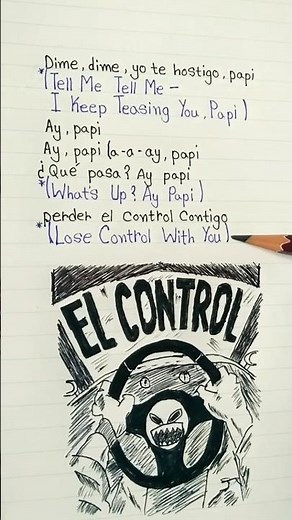 Dime, dime, yo te hostigo, papi
*(Tell Me Tell Me –
I Keep Teasing You, Papi)
Ay, papi
Ay, papi (a-a-ay, papi
¿Qué pasa? Ay papi
*(What's Up? Ay Papi)
perder el Control Contigo
*(Lose Control With You)
EL CONTROL